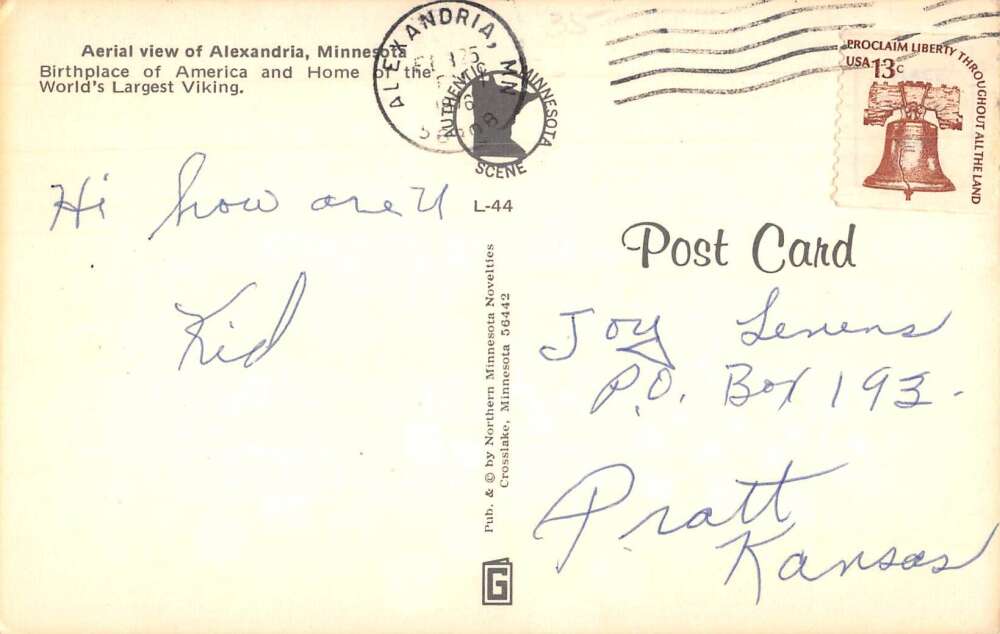 Aerial view of Alexandria, Minnesota
Birthplace of America and Home of the
World's Largest Viking.
ALEXANDRIA, MN
AUTHENTIC MINNESOTA
SCENE
PROCLAIM LIBERTY THROUGHOUT ALL THE LAND
USA 13c
L-44
Hi how are U
Kid
Pub. & © by Northern Minnesota Novelties
Crosslake, Minnesota 56442
G
Post Card
Joy
P.O. Box 193.
Pratt
Kansas